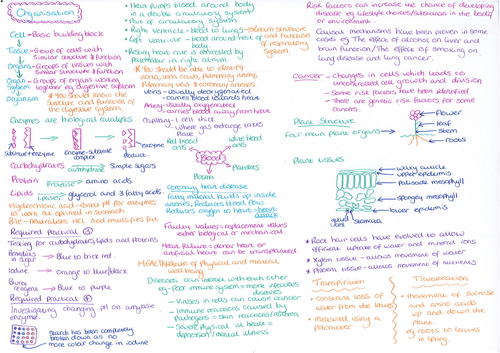 Organisation
Cell - Basic building block
Tissue - Group of cells with
similar structure & function
Organ - Groups of tissues with
similar structure & function
Organ system - Groups of organs working
together eg digestive system
Organism
* You should know the
structure and function of
the digestive system.
Enzymes are biological catalysts
substrate + enzyme
enzyme-substrate
complex
enzyme
Product
Carbohydrates
carbohydrase
simple sugars
Protein
Protease
amino acids
Lipids
Lipase
glycerol and 3 fatty acids.
Hydrochloric acid - Great pH for enzymes
to work at optimal in stomach.
Bile - Neutralises HCl and emulsifies fat
Required practical
Testing for carbohydrates, lipids and proteins
Benedict's
in sugar
Blue to brick red.
Iodine
orange to blue/black
Biuret
reagent
Blue to purple
Required practical
Investigating changing pH on amylase
enzyme
Starch has been completely
broken down as no
more colour change in iodine
• Heart pumps blood around body
in a double circulatory system
• Part of circulatory system
• Right ventricle - blood to lungs
• Left ventricle - blood around rest of
body
• Resting heart rate is controlled by
pacemaker in right atrium
* You should be able to identify
aorta, vena cava, Pulmonary artery,
Pulmonary vein & coronary arteries
Learn structure
and function
of respiratory
system
Vein - usually deoxygenated
- carries blood towards heart
Artery - usually oxygenated
- carries blood away from heart
Capillary - 1 cell thick
- Where gas exchange takes
Place
Red blood
cells
white blood
cells
Blood
Platelets
Plasma
Coronary heart disease
Fatty material builds up inside
arteries, Reduces blood flow
Reduces oxygen to heart
Heart
attack
Faulty valves = replacement valves
either biological or mechanical.
Heart failure = donor heart or
artificial heart can be transplanted
HEALTH = State of physical and mental
well-being
Diseases can interact with each other
eg - Poor immune system = more infectious
diseases
- Viruses in cells can cause cancer
- Immune reactions caused by
pathogens = skin reactions/asthma
- Severe physical ill health =
depression/mental illness
Risk factors can increase the chance of developing
a disease eg lifestyle choices/substances in the body/
or environment
Causal mechanisms have been proven in some
cases eg The effect of alcohol on liver and
brain function/The effects of smoking on
lung disease and lung cancer.
Cancer - Changes in cells which leads to
uncontrolled cell growth and division
- Some risk factors have been identified
- There are genetic risk factors for some
cancers.
Plant Structure
Four main plant organs
flower
leaf
stem
roots
Plant tissues
waxy cuticle
upper epidermis
palisade mesophyll
spongey mesophyll
lower epidermis
guard
cell
stomata
* Root hair cells have evolved to allow
efficient uptake of water and mineral ions
* Xylem tissue - allows movement of water
* Phloem tissue - allows movement of nutrients
Transpiration
• constant loss of
water from the leaves
• measured using a
potometer
Translocation
• movement of sucrose
and amino acids
up and down the
plant.
eg roots to leaves
in spring.